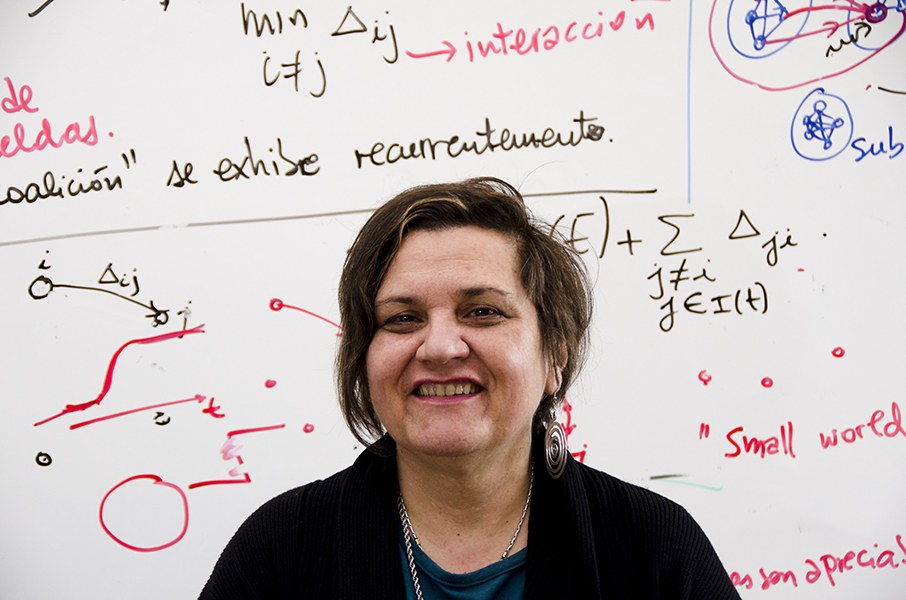 min Δij
i≠j
→ interacción
de
eldas.
coalición" se exhibe recurrentemente.
sub
(t) + Σ Δji .
j≠i
j∈I(t)
i
Δij
j
t
2
"Small world
son aprecia